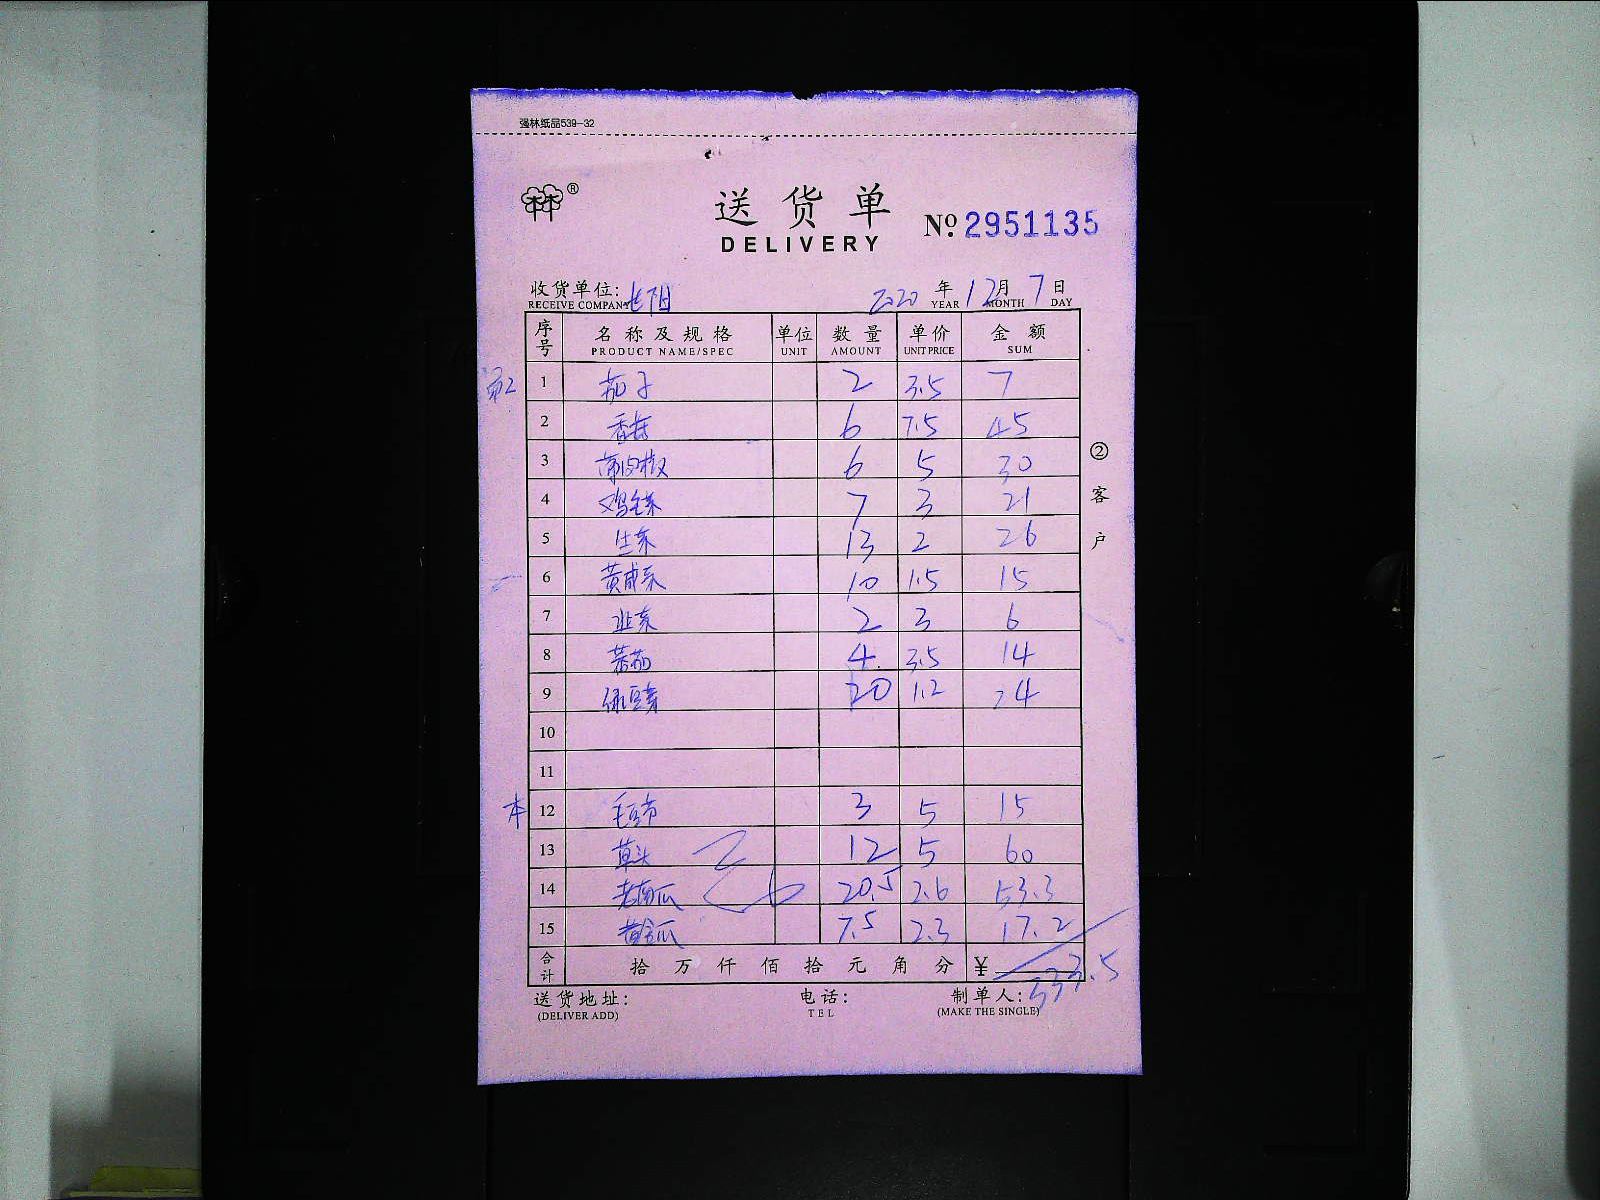 强林纸品539-32
®
送货单
DELIVERY
No. 2951135
收货单位: 长阳
RECEIVE COMPANY
2020 年 12 月 7 日
YEAR MONTH DAY
序号 名称及规格 单位 数量 单价 金额
PRODUCT NAME/SPEC UNIT AMOUNT UNIT PRICE SUM
1 茄子 2 3.5 7
2 香菇 6 7.5 45
3 薄皮椒 6 5 30
4 鸡毛菜 7 3 21
5 生菜 13 2 26
6 10 1.5 15
7 韭菜 2 3 6
8 蕃茄 4 3.5 14
9 绿豆芽 20 1.2 24
10
11
本 12 毛豆节 3 5 15
13 草头 12 5 60
14 老南瓜 20.5 2.6 53.3
15 黄金瓜 7.5 2.3 17.2
合计 拾 万 仟 佰 拾 元 角 分 ¥ 333.5
②客户
送货地址: 电话: 制单人:
(DELIVER ADD) TEL (MAKE THE SINGLE)